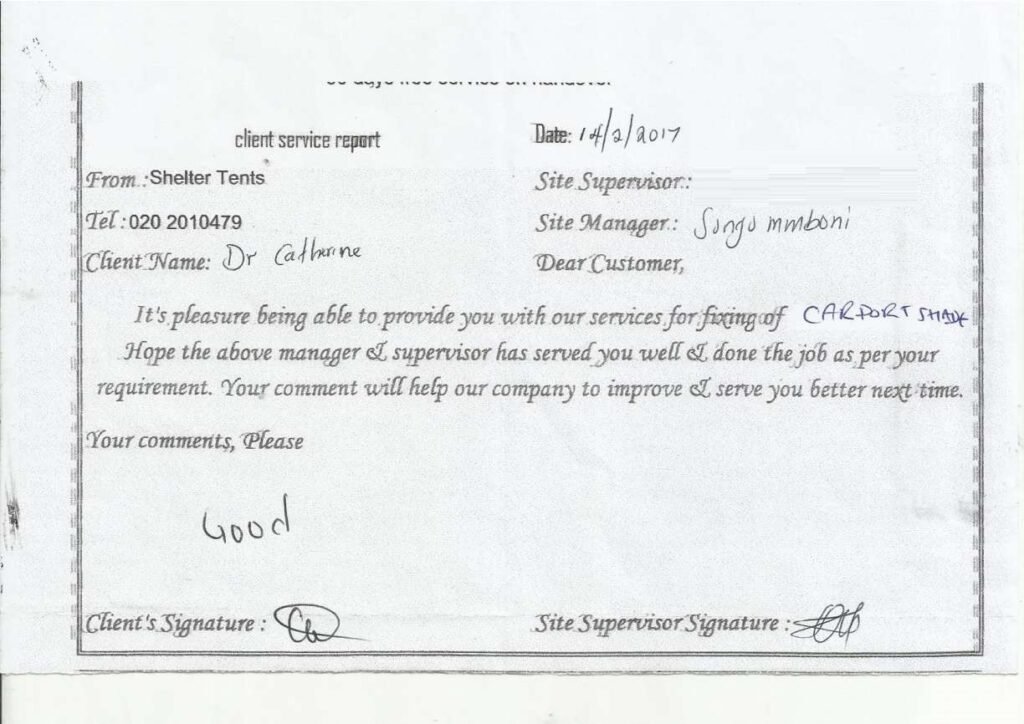 client service report
Date: 14/2/2017
From : Shelter Tents
Site Supervisor:
Tel : 020 2010479
Site Manager: Songo mmboni
Client Name: Dr Catherine
Dear Customer,
It's pleasure being able to provide you with our services for fixing of CARPORT SHADE
Hope the above manager & supervisor has served you well & done the job as per your
requirement. Your comment will help our company to improve & serve you better next time.
Your comments, Please
Good
Client's Signature :
Site Supervisor Signature :